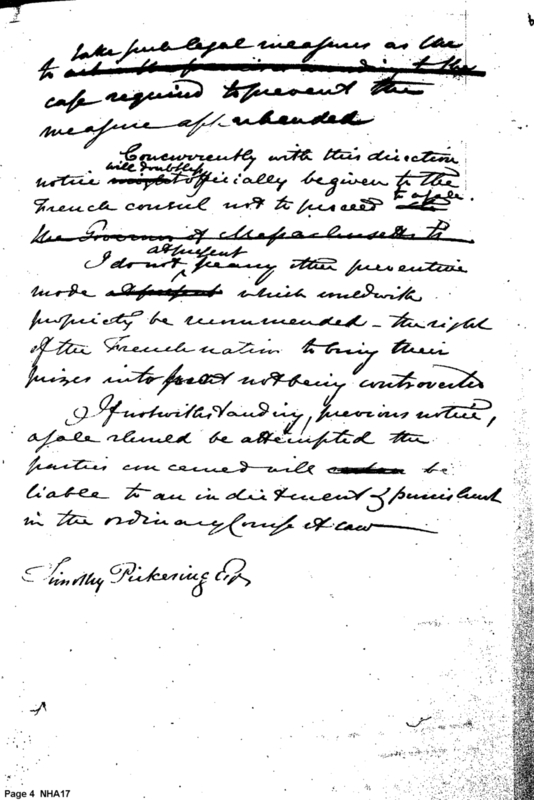 take such legal measures as the
to act in the premises according to the
case required to prevent the
measure apprehended
Concurrently with this direction
will doubtless
notice might officially be given to the
French consul not to proceed to a sale.
the Governor of Massachusetts to
at present
I do not see any other preventive
mode at present which could with
propriety be recommended – the right
of the French nation to bring their
prizes into not being controverted
If notwithstanding, previous notice,
a sale should be attempted the
parties concerned will be
liable to an indictment & punishment
in the ordinary Course of Law
Timothy Pickering Esqr
Page 4 NHA17